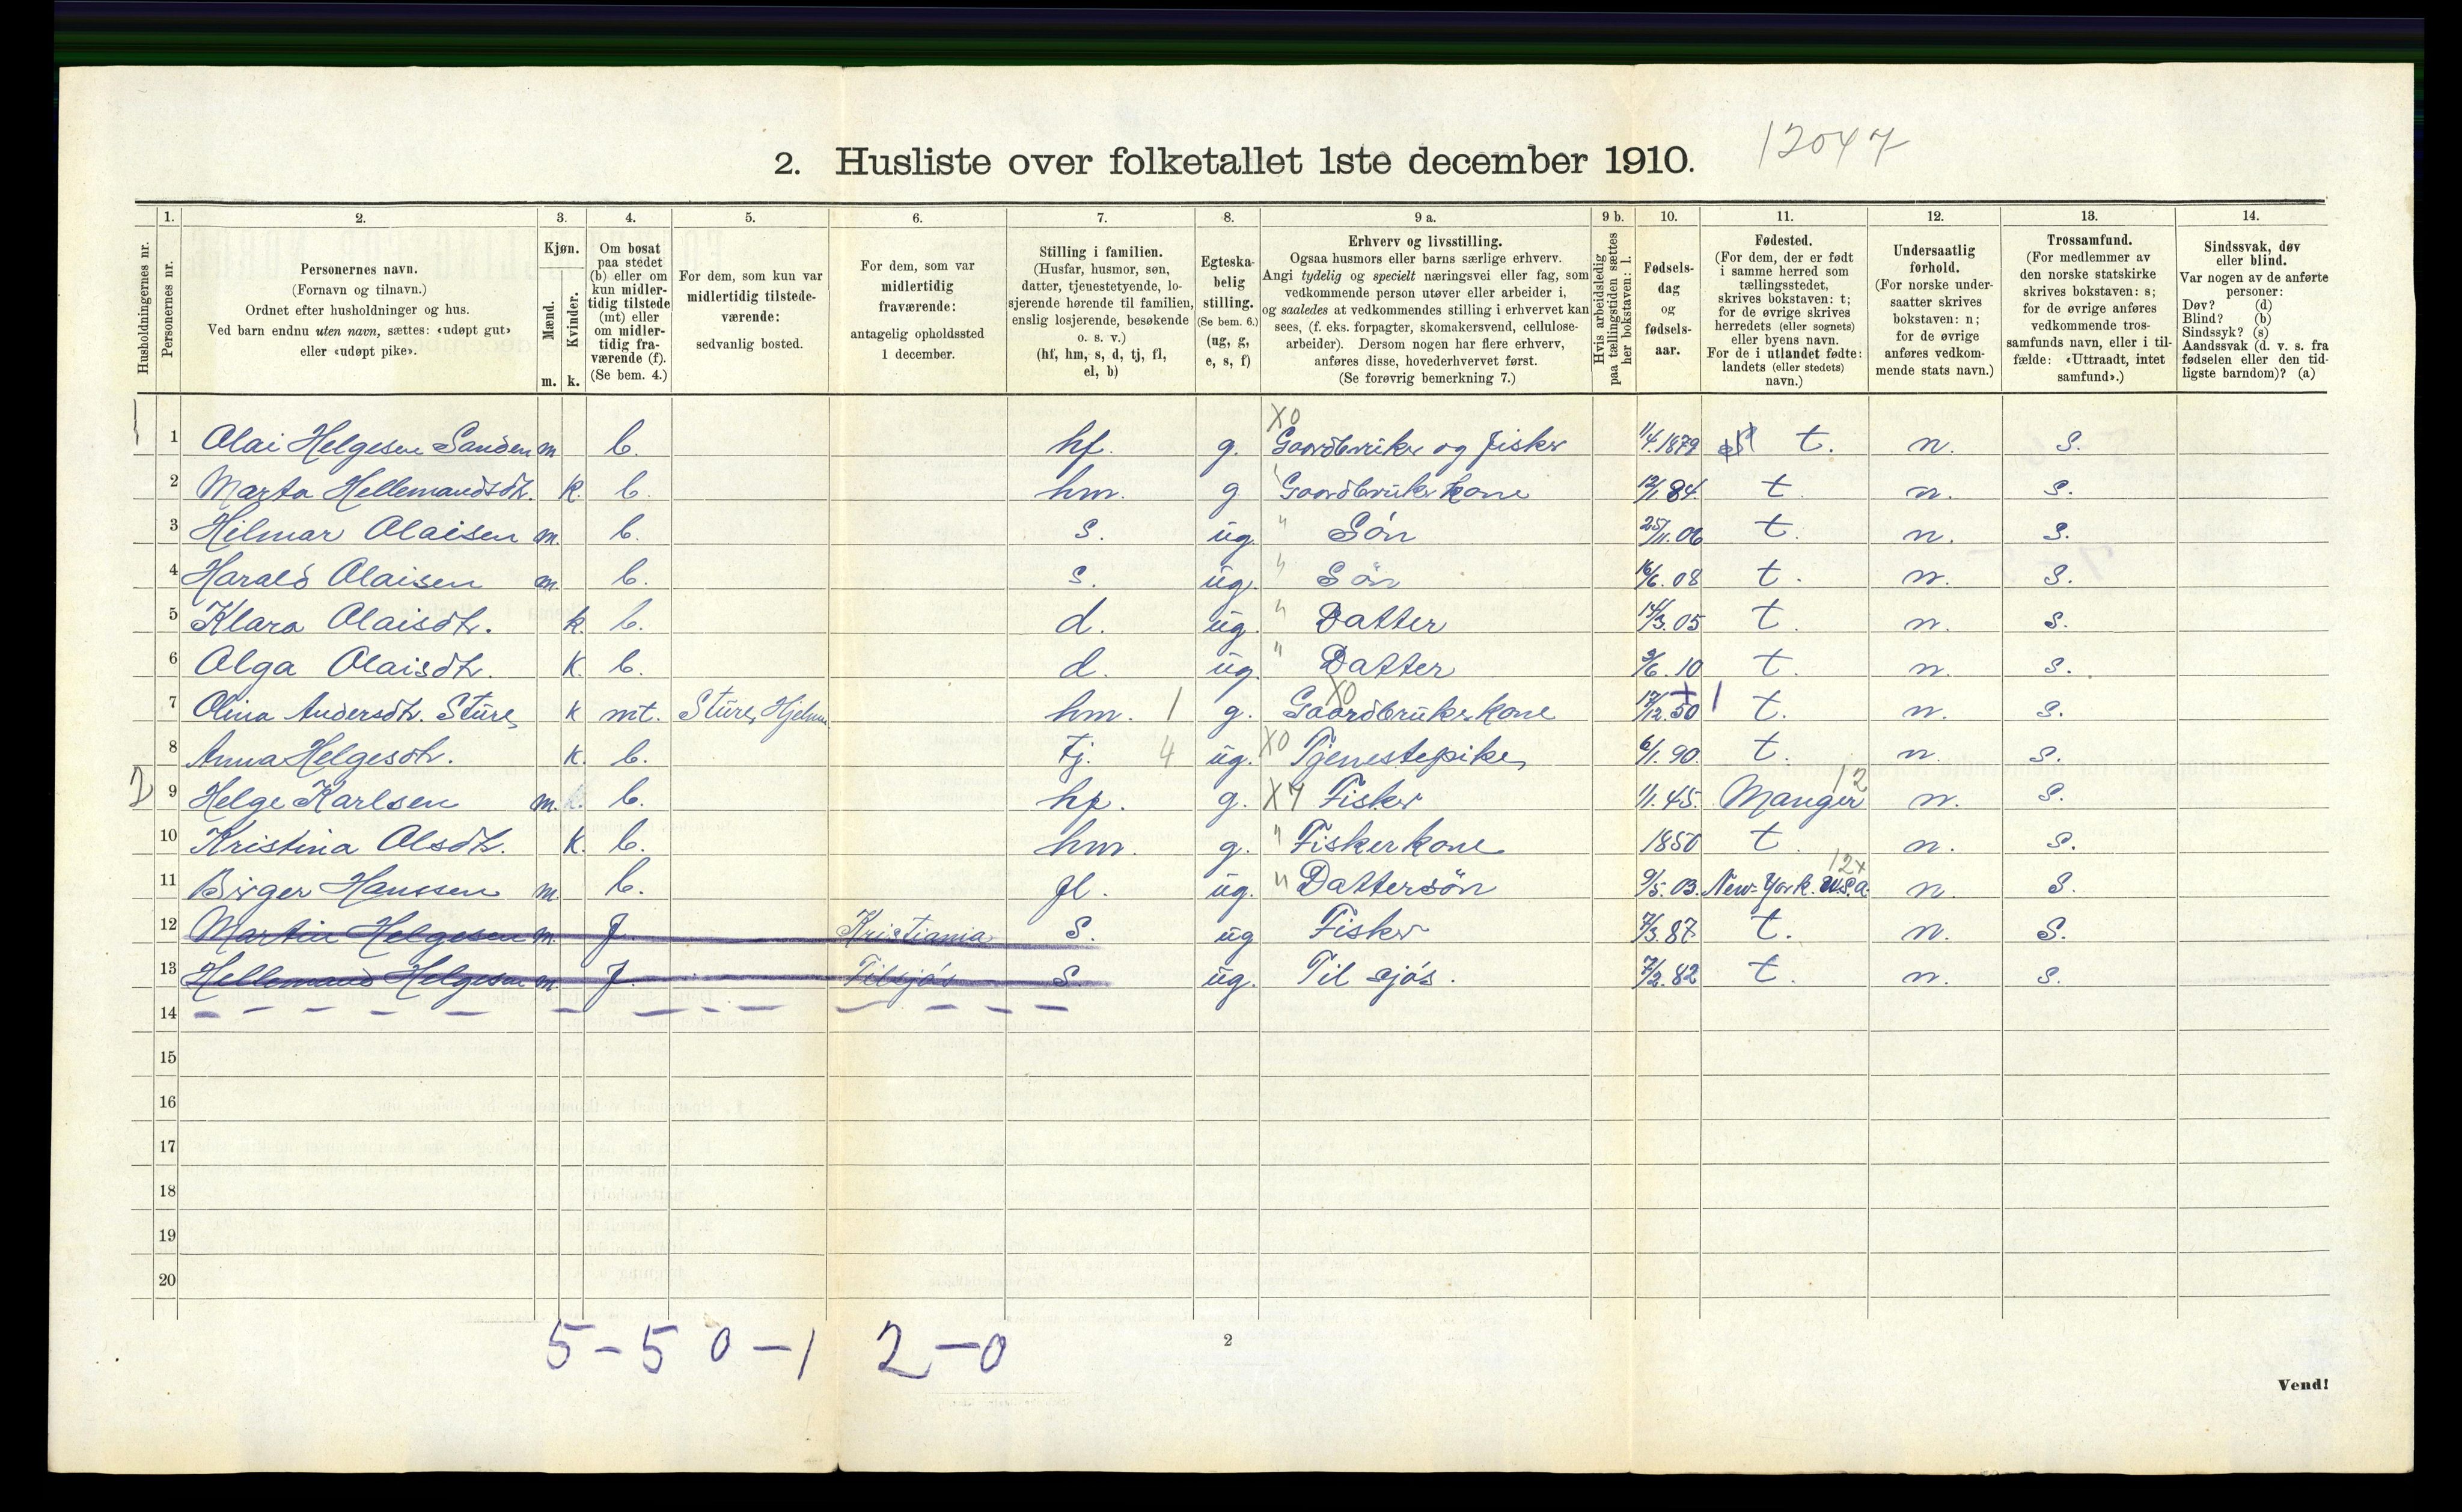 12047
2. Husliste over folketallet 1ste december 1910.
Husholdningernes nr.
1. Personernes nr.
2. Personernes navn. (Fornavn og tilnavn.) Ordnet efter husholdninger og hus. Ved barn endnu uten navn, sættes: «udøpt gut» eller «udøpt pike».
3. Kjøn. Mænd. m. Kvinder. k.
4. Om bosat paa stedet (b) eller om kun midlertidig tilstede (mt) eller om midlertidig fraværende (f). (Se bem. 4.)
5. For dem, som kun var midlertidig tilstedeværende: sedvanlig bosted.
6. For dem, som var midlertidig fraværende: antagelig opholdssted 1 december.
7. Stilling i familien. (Husfar, husmor, søn, datter, tjenestetyende, losjerende hørende til familien, enslig losjerende, besøkende o. s. v.) (hf, hm, s, d, tj, fl, el, b)
8. Egteskabelig stilling. (Se bem. 6.) (ug, g, e, s, f)
9 a. Erhverv og livsstilling. Ogsaa husmors eller barns særlige erhverv. Angi tydelig og specielt næringsvei eller fag, som vedkommende person utøver eller arbeider i, og saaledes at vedkommendes stilling i erhvervet kan sees, (f. eks. forpagter, skomakersvend, cellulosearbeider). Dersom nogen har flere erhverv, anføres disse, hovederhvervet først. (Se forøvrig bemerkning 7.)
9 b. Hvis arbeidsledig paa tællingstiden sættes her bokstaven: l.
10. Fødselsdag og fødselsaar.
11. Fødested. (For dem, der er født i samme herred som tællingsstedet, skrives bokstaven: t; for de øvrige skrives herredets (eller sognets) eller byens navn. For de i utlandet fødte: landets (eller stedets) navn.)
12. Undersaatlig forhold. (For norske undersaatter skrives bokstaven: n; for de øvrige anføres vedkommende stats navn.)
13. Trossamfund. (For medlemmer av den norske statskirke skrives bokstaven: s; for de øvrige anføres vedkommende trossamfunds navn, eller i tilfælde: «Uttraadt, intet samfund».)
14. Sindssvak, døv eller blind. Var nogen av de anførte personer: Døv? (d) Blind? (b) Sindssyk? (s) Aandssvak (d. v. s. fra fødselen eller den tidligste barndom)? (a)
1 1 Olai Helgesen Sanden m b. hf. g. X0 Gaardbruker og fisker 11/4.1879 t. n. s.
2 Marta Hellemandsdtr. k. b. hm. g Gaardbruker kone 12/1 84. t. n. s.
3 Hilmar Olaisen m. b. s. ug. " Søn 25/11.06 t. n. s.
4 Harald Olaisen m. b. s. ug. " Søn 16/6.08 t. n. s.
5 Klara Olaisdtr. k. b. d. ug. " Datter 14/3.05 t. n. s.
6 Olga Olaisdtr. k. b. d. ug. " Datter 3/6.10 t. n. s.
7 Olina Andersdtr. Sture k mt. Sture, Hjelme hm. 1 g. X0 Gaardbrukerkone 17/12.50 t. n. s.
8 Anna Helgesdtr. k. b. Tj. 4 ug. X0 Tjenestepike 6/1.90. t. n. s.
2 9 Helge Karlsen m. b. hf. g. X4 Fisker 1/1.45. Manger 12 n. s.
10 Kristina Olsdtr. k. b. hm. g. " Fiskerkone 1850 t. n. s.
11 Birger Hanssen m b. fl. ug. " Dattersøn 9/5.03. New-York. U.S.a. 12x n. s.
12 Martin Helgesen m. f. Kristiania S. ug Fisker 7/3.87 t. n. s.
13 Hellemand Helgesen m. f. Tilsjøs S. ug. Til sjøs. 7/2.82 t. n. s.
14
15
16
17
18
19
20
5-5 0-1 2-0
2
Vend!